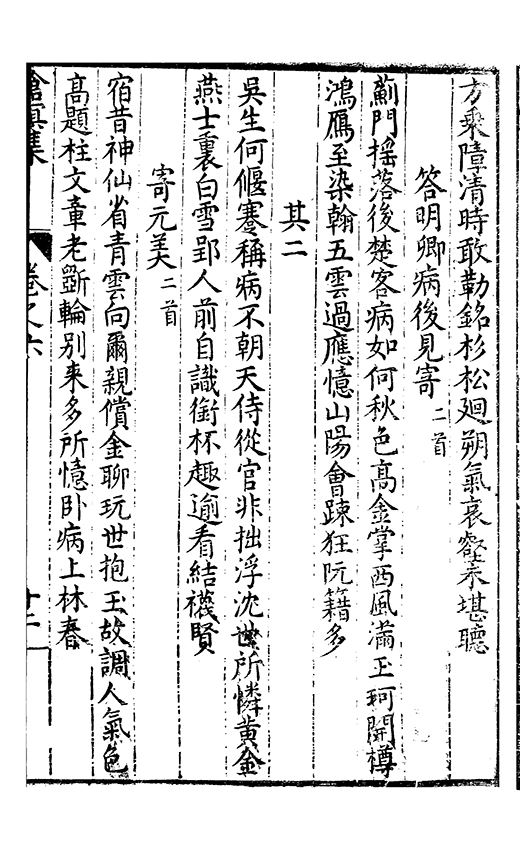 方乘障清時敢勒銘杉松廻朔氣哀壑不堪聽
答明卿病後見寄二首
薊門搖落後楚客病如何秋色高金掌西風滿玉珂開樽
鴻鴈至染翰五雲過應憶山陽會踈狂阮籍多
其二
吳生何偃蹇稱病不朝天侍從官非拙浮沈世所憐黃金
燕士裏白雪郢人前自識銜杯趣逾看結襪賢
寄元美二首
宿昔神仙省青雲向爾親償金聊玩世抱玉故調人氣色
高題柱文章老斵輪別来多所憶卧病上林春
滄溟集
卷之六
十二